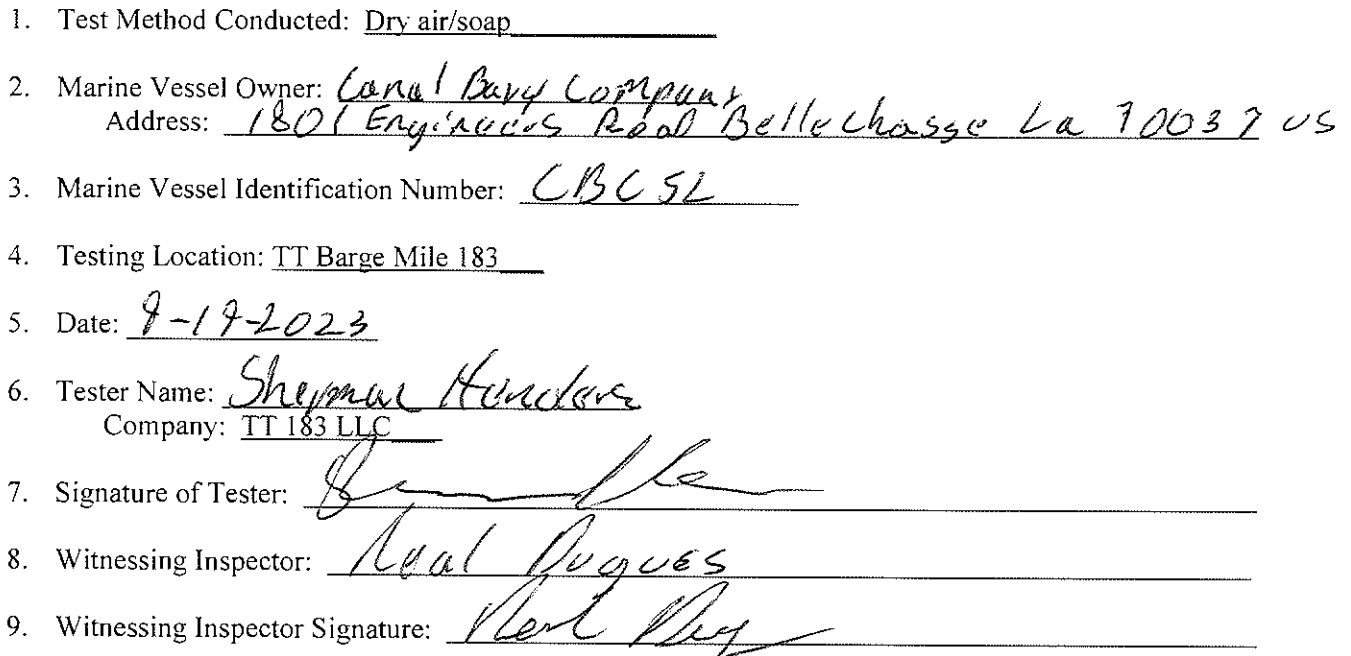 1. Test Method Conducted: Dry air/soap
2. Marine Vessel Owner: Canal Barg Company
Address: 1801 Engineers Road Belle Chasse La 70037 US
3. Marine Vessel Identification Number:
4. Testing Location: TT Barge Mile 183
5. Date: 9-19-2023
6. Tester Name:
Company: TT 183 LLC
7. Signature of Tester:
8. Witnessing Inspector: Dugues
9. Witnessing Inspector Signature: